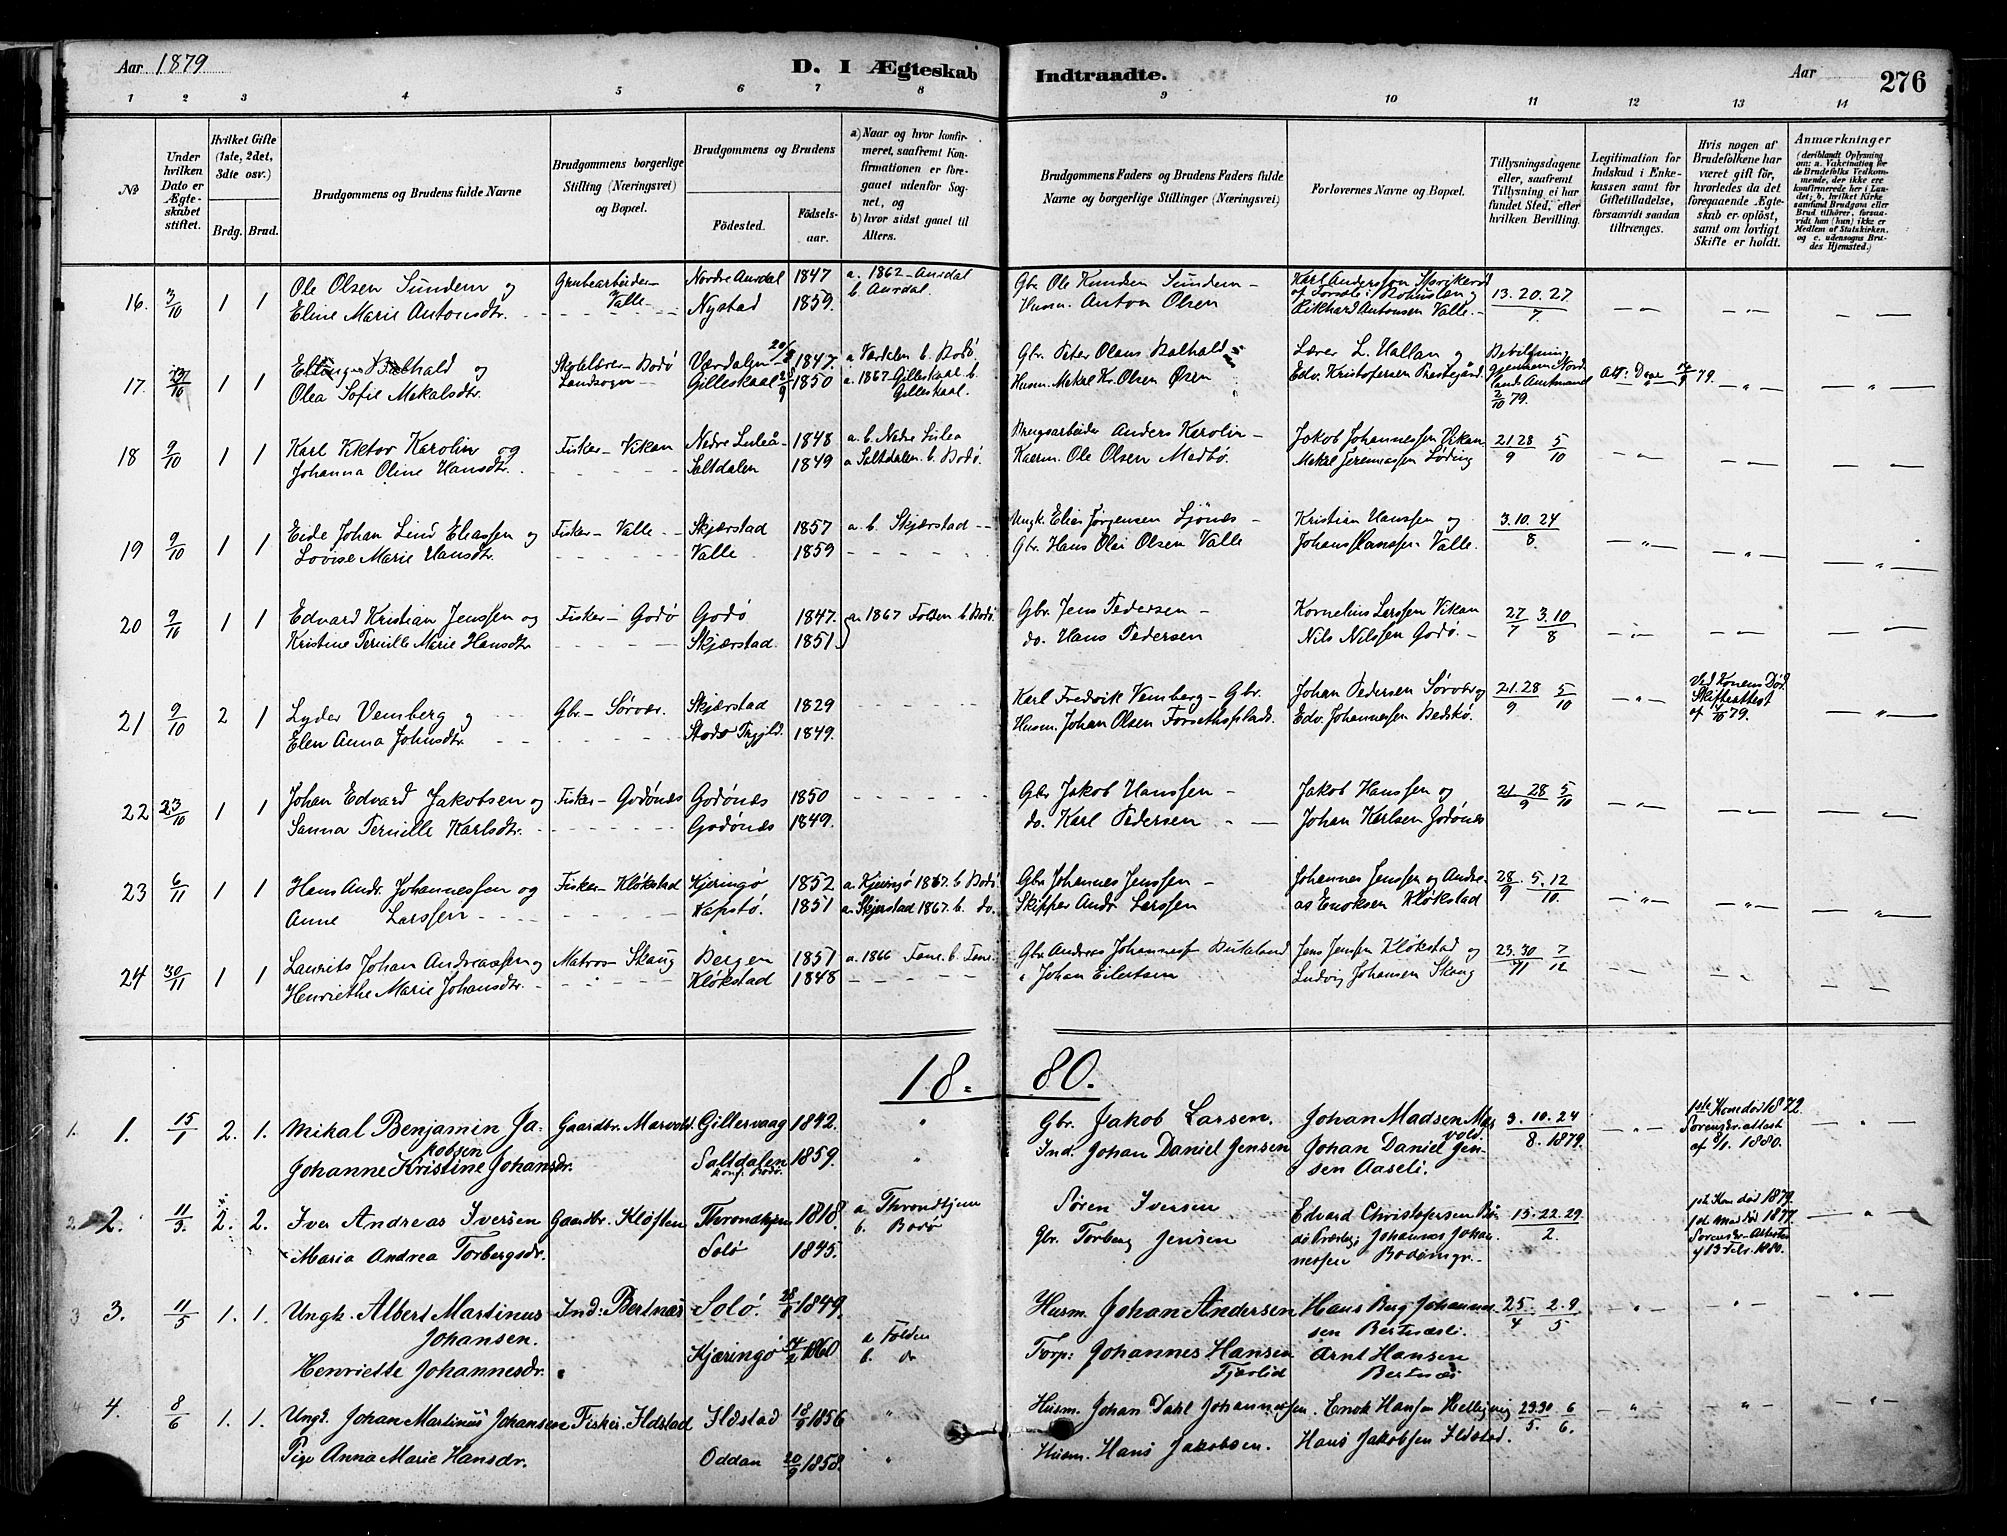 Aar 1879
D. I Ægteskab Indtraadte.
Aar
276
1 2 3 4 5 6 7 8 9 10 11 12 13 14
No
Under hvilken Dato er Ægteskabet stiftet.
Hvilket Gifte (1ste, 2det, 3die osv.)
Brdg. Brud.
Brudgommens og Brudens fulde Navne
Brudgommens borgerlige Stilling (Næringsvei) og Bopæl.
Brudgommens og Brudens
Fødested.
Fødselsaar.
a) Naar og hvor konfirmeret, saafremt Konfirmationen er foregaaet udenfor Sognet, og
b) hvor sidst gaaet til Alters.
Brudgommens Faders og Brudens Faders fulde Navne og borgerlige Stillinger (Næringsvei)
Forlovernes Navne og Bopæl.
Tillysningsdagene eller, saafremt Tillysning ei har fundet Sted, efter hvilken Bevilling.
Legitimation for Indskud i Enkekassen samt for Giftetilladelse, forsaavidt saadan tiltrænges.
Hvis nogen af Brudefolkene har været gift før, hvorledes da det foregaaende Ægteskab er opløst, samt om lovligt Skifte er holdt.
Anmærkninger
(deriblandt Oplysning om: a. Vakcination for de Brudefolks Vedkommende, der ikke ere konfirmerede her i Landet; b. hvilket Kirkesamfund Brudgom eller Brud tilhører, forsaavidt han (hun) ikke er Medlem af Statskirken, og c. udensogns Brudes Hjemsted.)
16. 3/10 1 1 Ole Olsen Sundem og Grubearbeider Nordre Aurdal 1847 a. 1862 - Aurdal Gbr Ole Knudsen Sundem - 13. 20. 27/7
Eline Marie Antonsdtr. Valle Nystad 1859. b. Aurdal. Husm. Anton Olsen Rikhard Antonsen Valle.
17. 1 1 og Bodø Værdalen 1847. a Værdalen b. Bodø. Gbr. Peter Olaus Balhald Lærer L. Hallan og
Olea Sofie Mekalsdtr. Landsogn Gilleskaal 1850 a. 1867 Gilleskaal b. Gilleskaal. Husm. Mekal Kr. Olsen Øien Edv. Kristofersen Prestegård 2/10 79.
18 9/10 1 1 Karl Viktor Karolin og Fisker - Vikan Nedre Luleå 1848 a. b. Nedre Lulea Brugsarbeider Anders Karolin - Jakob Johannessen Vikan 21 28/9 5/10
Johanna Oline Hansdtr. Saltdalen 1849 a Saltdalen b. Bodø. Ole Olsen Medbø. Mekal Jeremiassen Løding
19 9/10 1 1 Eide Johan Lind Eliassen og Fisker - Valle Skjærstad 1857 a. b. Skjærstad Ungk. Elias Jørgensen Ljønes - Kristian Hanssen og 3. 10. 24/8.
Lovise Marie Hansdtr. Valle 1859 Gbr. Hans Olai Olsen Valle Johan Hanssen Valle.
20 9/10 1 1 Edvard Kristian Jenssen og Fisker - Godø Godø 1847. a. 1867 Folden b. Bodø. Gbr. Jens Pedersen - Kornelius Larssen Vikan 27/7 3. 10/8
Kristine Pernille Marie Hansdtr. Skjærstad. 1851. do. Hans Pedersen Nils Nilssen Godø. -
21 9/10 2 1 Lyder Vemberg og Gbr. - Sørvær. Skjærstad 1829 Karl Fredrik Vemberg - Gbr. Johan Pedersen Sørvær og 21. 28/9 5/10 Ved Konens Død. Skifteattest af 79.
Elen Anna Johnsdtr. 1849. Husm. Johan Olsen Edv. Johannessen
22 23/10 1 1 Johan Edvard Jakobsen og Fisker - Godønes Godønæs 1850 Gbr Jakob Hanssen - Jakob Hanssen og 21 28/9 5/10
Sanna Pernille Karlsdtr. Godønæs 1849. do. Karl Pedersen Johan Karlsen Godønes
23 6/11 1 1 Hans Andr. Johannessen og Fisker - Kløkstad Kjeringø 1852 a. Kjeringø 1867. b Bodø. Gbr Johannes Jenssen - Johannes Jenssen og Andre- 28/9. 5. 12/10.
Anne Larssen Køpstø. 1851 a. Skjerstad 1867. b. do. Skipper Andr. Larssen as Enoksen Kløkstad
24 30/11 1 1 Laurits Johan Andreassen og Matros - Skaug Bergen 1851 a. 1866 Fane. b. Fane. Gbr Andreas Johannessen Birkeland Jens Jenssen Kløkstad og 23. 30/11 7/12
Henriethe Marie Johansdtr. Kløkstad 1848 Johan Eilertsen Ludvig Johansen Skaug
18 - 80.
1. 1. 15/1 2. 1. Mikal Benjamin Ja- Gaardbr. Marvold. Gillesvaag 1842. Gbr. Jakob Larsen. Johan Madsen Mar- 3. 10. 24 1ste Kone død 1872.
kobsen vold. 8. 1879.
Johanne Kristine Johansdr. Saltdalen 1859. Ind. Johan Daniel Jensen Johan Daniel Jen- af 8/1. 1880.
konf. Bodø. sen Aaseli.
2 2. 11/3 2. 2. Iver Andreas Iversen Gaardbr. Kløften Throndhjem 1818. a. Throndhjem Søren Iversen Edvard Christofersen Bo- 15. 22. 29/2. 1ste Kone død 1879.
b. Bodø
Maria Andrea Torbergsdr. Solø 1845. Gbr. Torberg Jensen Johannes Johan- 1ste Mand død 1877.
nessen 13 Febr. 1880.
3 3. 11/5 1. 1. Ungk. Albert Martinus Ind: Bertnæs Solø. 1849. Husm. Johan Andersen Hans Berg Johann- 25/4. 2. 9/5
Johansen. sen Bertnæs.
Henriette Johannesdr. Kjæringø 1860 a Folden b. do Torp: Johannes Hansen Fjærlid Arnt Hansen Bertnæs
4 4. 8/6 1. 1. Ungk. Johan Martinus Johansen Fisker. Ildstad Ildstad 18/9 1856 Husm. Johan Dahl Johannessen. Enok Hansen 23. 30/5. 6/6.
Pige Anna Marie Hansdr. Oddan 20/9 1858. Husm. Hans Jakobsen. Hans Jakobsen Ildstad.